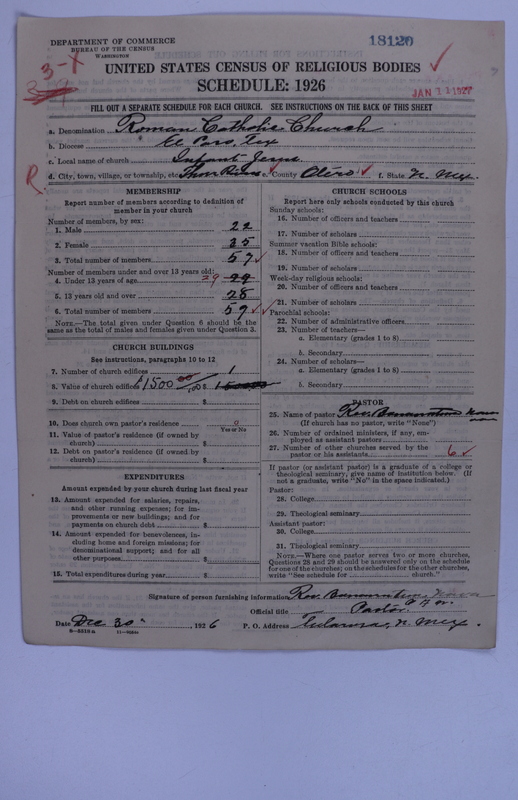 DEPARTMENT OF COMMERCE
BUREAU OF THE CENSUS
WASHINGTON
18120
3-X
UNITED STATES CENSUS OF RELIGIOUS BODIES
SCHEDULE: 1926
JAN 11 1927
FILL OUT A SEPARATE SCHEDULE FOR EACH CHURCH. SEE INSTRUCTIONS ON THE BACK OF THIS SHEET
a. Denomination Roman Catholic Church
b. Diocese El Paso, Tex
c. Local name of church Infant Jesus
R
d. City, town, village, or township, etc. Three Rivers e. County Otero f. State N. Mex.
MEMBERSHIP
Report number of members according to definition of member in your church
Number of members, by sex:
1. Male 22
2. Female 35
3. Total number of members 57
Number of members under and over 13 years old:
4. Under 13 years of age 29 29
5. 13 years old and over 28
6. Total number of members 57
NOTE.—The total given under Question 6 should be the same as the total of males and females given under Question 3.
CHURCH BUILDINGS
See instructions, paragraphs 10 to 12
7. Number of church edifices 1
8. Value of church edifices $1500 00/100 $
9. Debt on church edifices $
10. Does church own pastor's residence 0
Yes or No
11. Value of pastor's residence (if owned by church) $
12. Debt on pastor's residence (if owned by church) $
EXPENDITURES
Amount expended by your church during last fiscal year
13. Amount expended for salaries, repairs, and other running expenses; for improvements or new buildings; and for payments on church debt $
14. Amount expended for benevolences, including home and foreign missions; for denominational support; and for all other purposes $
15. Total expenditures during year $
CHURCH SCHOOLS
Report here only schools conducted by this church
Sunday schools:
16. Number of officers and teachers
17. Number of scholars
Summer vacation Bible schools:
18. Number of officers and teachers
19. Number of scholars
Week-day religious schools:
20. Number of officers and teachers
21. Number of scholars
Parochial schools:
22. Number of administrative officers
23. Number of teachers—
a. Elementary (grades 1 to 8)
b. Secondary
24. Number of scholars—
a. Elementary (grades 1 to 8)
b. Secondary
PASTOR
25. Name of pastor Rev. Buenaventura
(If church has no pastor, write "None")
26. Number of ordained ministers, if any, employed as assistant pastors
27. Number of other churches served by the pastor or his assistants 6
If pastor (or assistant pastor) is a graduate of a college or theological seminary, give name of institution below. (If not a graduate, write "No" in the space indicated.)
Pastor:
28. College
29. Theological seminary
Assistant pastor:
30. College
31. Theological seminary
NOTE.—Where one pastor serves two or more churches, Questions 28 and 29 should be answered only on the schedule for one of the churches; on the schedules for the other churches, write "See schedule for church."
Signature of person furnishing information Rev. Buenaventura
Official title Pastor
Date Dec 30, 1926 P. O. Address Tularosa, N. Mex.
8-5518a